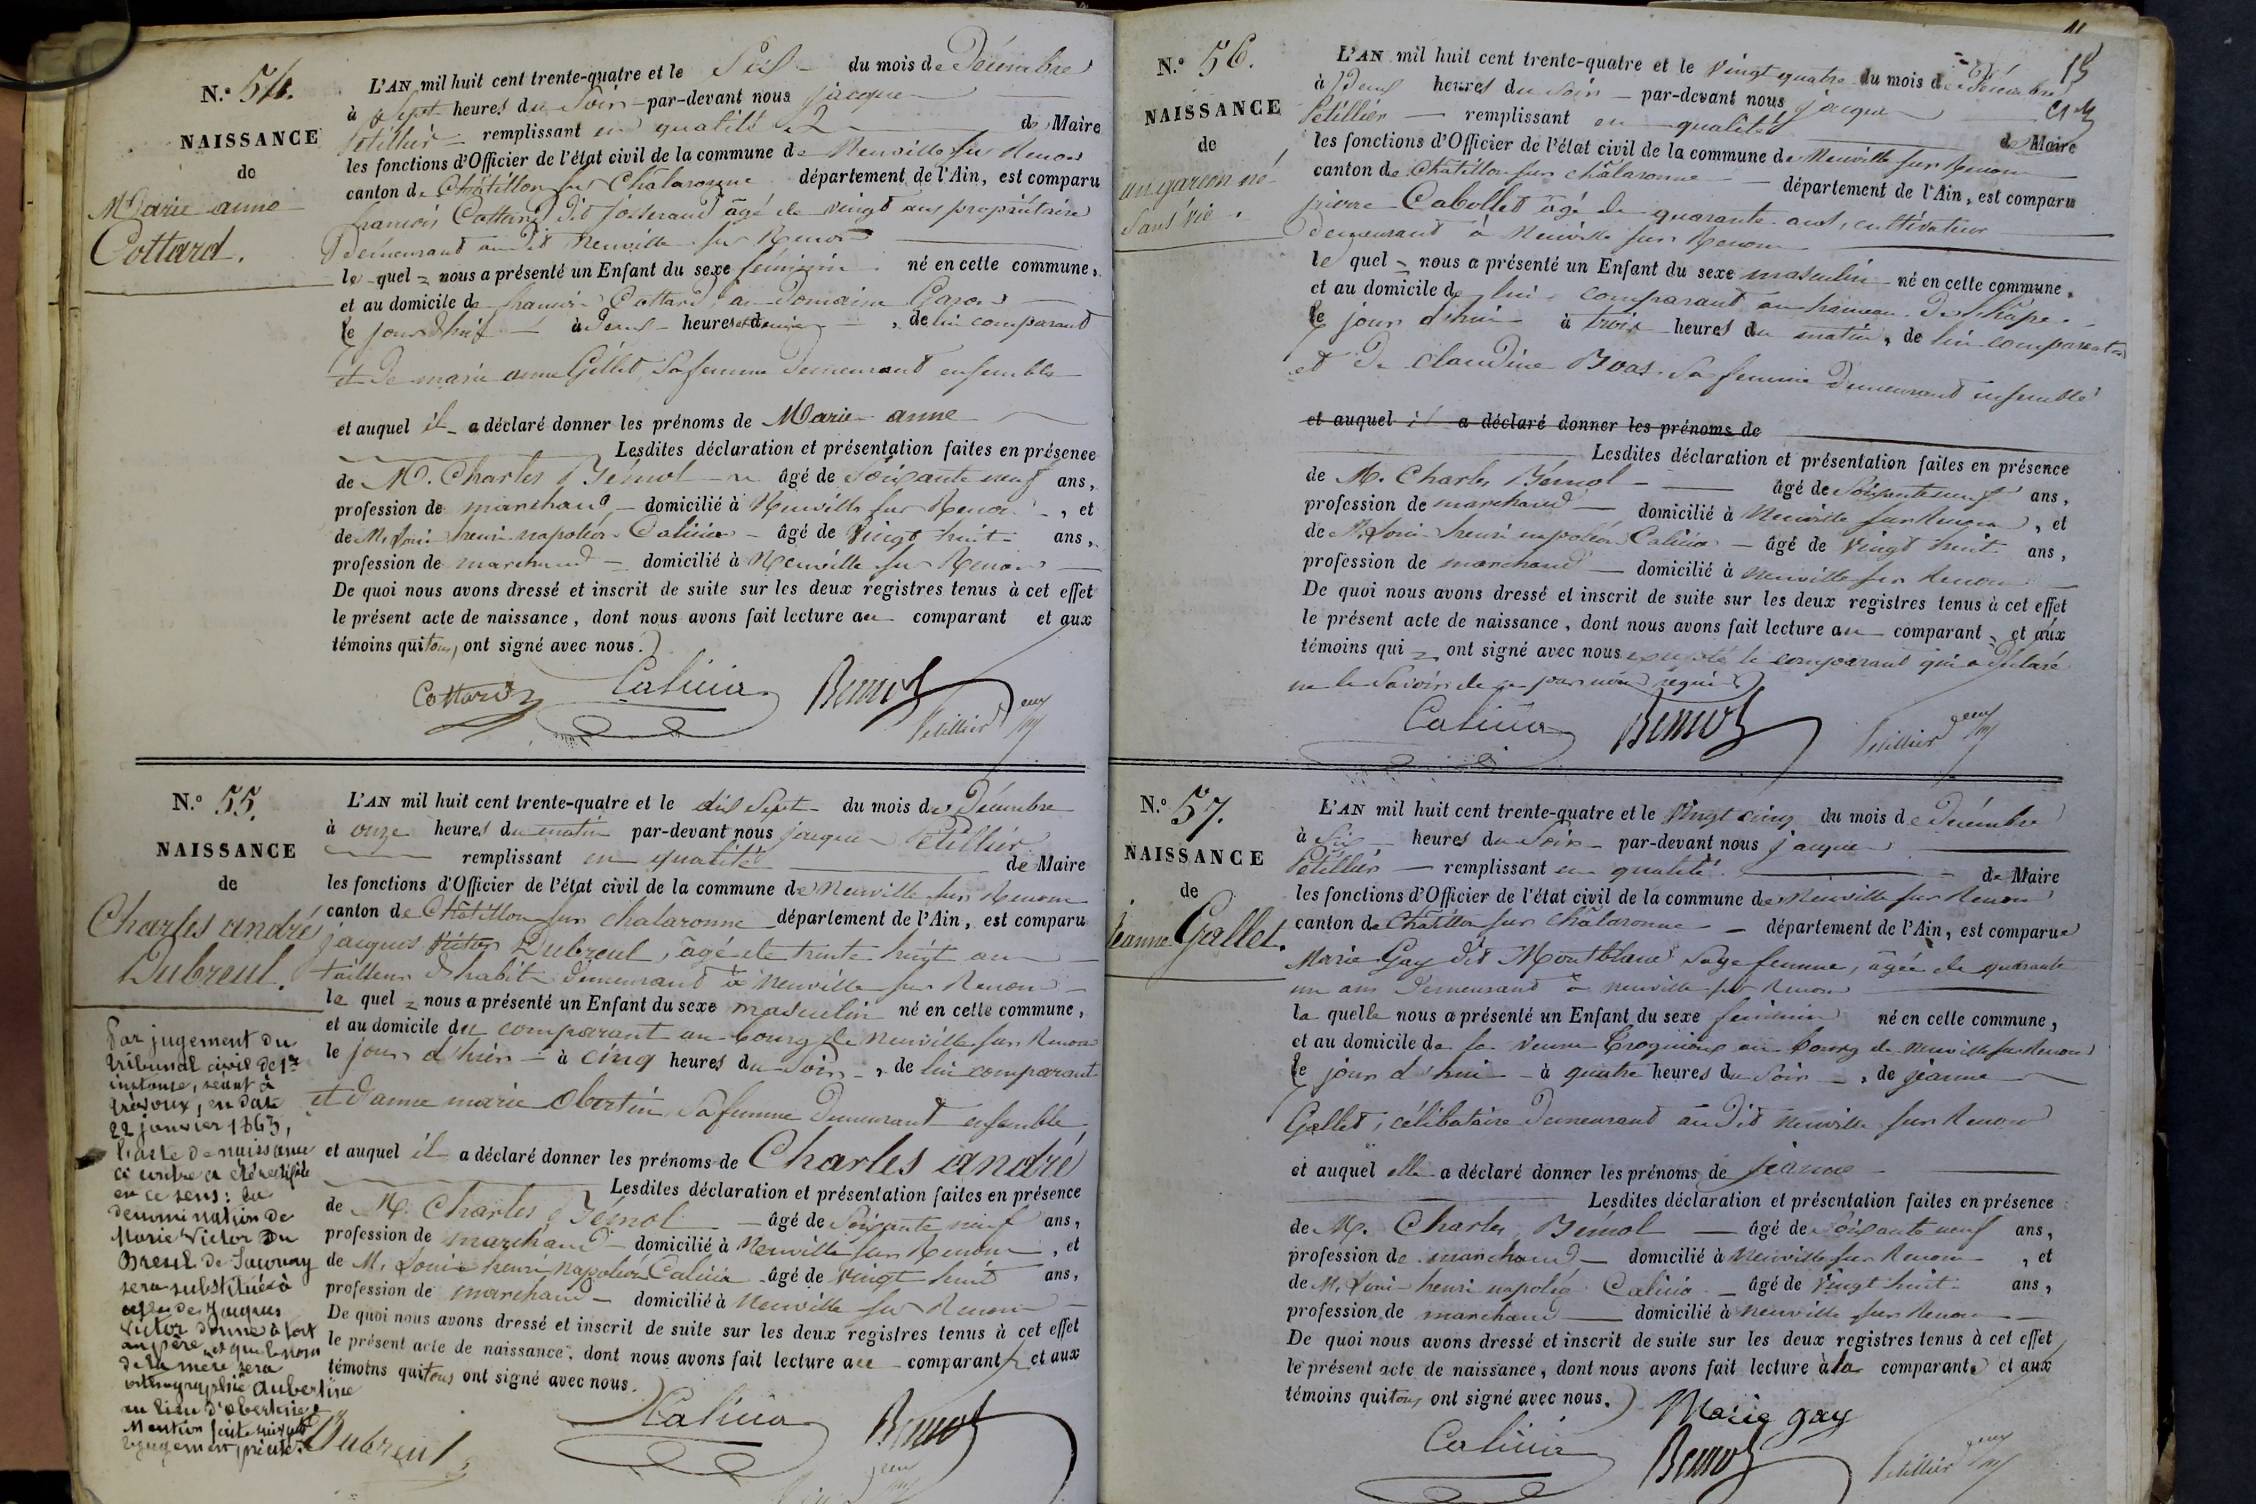 N.º 54.
NAISSANCE
de
Marie anne
Cottard.
L'AN mil huit cent trente-quatre et le Six du mois de Décembre
à Sept heures du Soir par-devant nous jacques
Pétillier remplissant en qualité de Maire
les fonctions d'Officier de l'état civil de la commune de Neuville sur Renon
canton de Châtillon sur Châlaronne département de l'Ain, est comparu
françois Cottard dit josserand âgé de vingt ans propriétaire
demeurant au dit Neuville sur Renon
le quel nous a présenté un Enfant du sexe féminin né en cette commune,
et au domicile de françois Cottard au Domaine
le jour d'hui à deux heures et demie, de lui comparant
et de marie anne Gillet, Sa femme demeurant ensemble
et auquel il a déclaré donner les prénoms de Marie anne
Lesdites déclaration et présentation faites en présence
de M. Charles Bémol âgé de Soixante neuf ans,
profession de marchand domicilié à Neuville sur Renon, et
de M. Loui henri napoléon Calicia âgé de Vingt huit ans,
profession de marchand domicilié à Neuville sur Renon
De quoi nous avons dressé et inscrit de suite sur les deux registres tenus à cet effet
le présent acte de naissance, dont nous avons fait lecture au comparant et aux
témoins qui tous, ont signé avec nous.
Cottard Calicia Bémol Pétillier
N.º 55.
NAISSANCE
de
Charles andré
Dubreul.
L'AN mil huit cent trente-quatre et le dix Sept du mois de Décembre
à onze heures du matin par-devant nous jacques Pétillier
remplissant en qualité de Maire
les fonctions d'Officier de l'état civil de la commune de Neuville sur Renon
canton de Châtillon sur chalaronne département de l'Ain, est comparu
jacques Victor Dubreul, âgé de trente huit ans
tailleur d'habits demeurant à Neuville sur Renon
le quel nous a présenté un Enfant du sexe masculin né en cette commune,
et au domicile du comparant au bourg de Neuville sur Renon
le jour d'hier à cinq heures du Soir, de lui comparant
et d'anne marie Obertin Sa femme demeurant ensemble
et auquel il a déclaré donner les prénoms de Charles andré
Lesdites déclaration et présentation faites en présence
de M. Charles Bémol âgé de Soixante neuf ans,
profession de marchand domicilié à Neuville sur Renon, et
de M. Loui henri Napoléon Calicia âgé de Vingt huit ans,
profession de marchand domicilié à Neuville sur Renon
De quoi nous avons dressé et inscrit de suite sur les deux registres tenus à cet effet
le présent acte de naissance, dont nous avons fait lecture au comparant et aux
témoins qui tous ont signé avec nous.
Calicia Bémol
Dubreul
Par jugement du
tribunal civil de 1re
instance, séant à
Trévoux, en date
22 janvier 1863,
l'acte de naissance
ci contre a été rectifié
en ce sens: la
dénomination de
Marie Victor Du
Breul de
sera substituée à
celle de Jacques
Victor donné à tort
au père et que le nom
de la mère sera
orthographié Aubertine
au lieu d'Obertine
Mention faite suivant
jugement précité.
N.º 56.
NAISSANCE
de
un garçon né
Sans vie.
15
L'AN mil huit cent trente-quatre et le Vingt quatre du mois de Décembre
à Deux heures du Soir par-devant nous jacques
Pétillier remplissant en qualité de Maire
les fonctions d'Officier de l'état civil de la commune de Neuville sur Renon
canton de Châtillon sur châlaronne département de l'Ain, est comparu
pierre Cabollet âgé de quarante ans, cultivateur
demeurant à Neuville sur Renon
le quel nous a présenté un Enfant du sexe masculin né en cette commune,
et au domicile de lui comparant au hameau de
le jour d'hui à trois heures du matin, de lui comparant
et de claudine Boas Sa femme demeurant ensemble
et auquel il a déclaré donner les prénoms de
Lesdites déclaration et présentation faites en présence
de M. Charles Bémol âgé de Soixante neuf ans,
profession de marchand domicilié à Neuville sur Renon, et
de M. Loui henri napoléon Calicia âgé de Vingt huit ans,
profession de marchand domicilié à Neuville sur Renon
De quoi nous avons dressé et inscrit de suite sur les deux registres tenus à cet effet
le présent acte de naissance, dont nous avons fait lecture au comparant et aux
témoins qui ont signé avec nous excepté le comparant qui a déclaré
ne le Savoir de ce par nous requis
Calicia Bémol Pétillier
N.º 57.
NAISSANCE
de
jeanne Gallet.
L'AN mil huit cent trente-quatre et le Vingt cinq du mois de Décembre
à Six heures du Soir par-devant nous jacques
Pétillier remplissant en qualité de Maire
les fonctions d'Officier de l'état civil de la commune de Neuville sur Renon
canton de Châtillon sur Châlaronne département de l'Ain, est comparue
Marie Gay dit Montblanc Sage femme, âgée de quarante
un ans demeurant à neuville sur Renon
la quelle nous a présenté un Enfant du sexe féminin né en cette commune,
et au domicile de la Veuve au bourg de neuville sur Renon
le jour d'hui à quatre heures du Soir, de jeanne
Gallet, célibataire demeurant au dit Neuville sur Renon
et auquel elle a déclaré donner les prénoms de jeanne
Lesdites déclaration et présentation faites en présence
de M. Charles Bémol âgé de Soixante neuf ans,
profession de marchand domicilié à Neuville sur Renon, et
de M. Loui henri napoléon Calicia âgé de Vingt huit ans,
profession de marchand domicilié à Neuville sur Renon
De quoi nous avons dressé et inscrit de suite sur les deux registres tenus à cet effet
le présent acte de naissance, dont nous avons fait lecture à la comparante et aux
témoins qui tous ont signé avec nous.
Marie gay
Calicia Bémol Pétillier